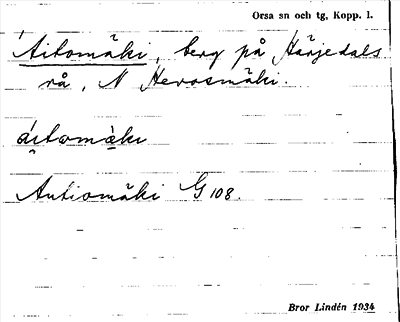 Orsa sn och tg, Kopp. l.
Aitomäki, berg på Härjedals
rå, N Hevosmäki.
áitomäki
Autiomäki G 108.
Bror Lindén 1934